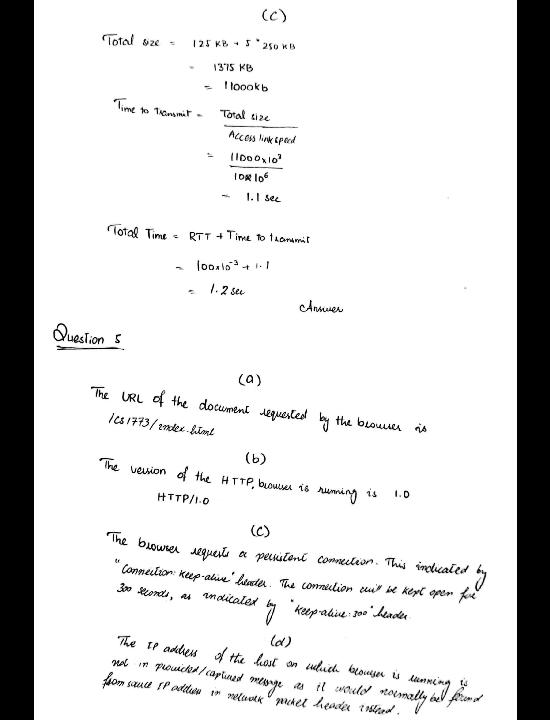 (C)
Total size = 125 KB + 5 * 250 KB
= 1375 KB
= 11000kb
Time to transmit = Total size
Access link speed
= 11000x10³
10x10⁶
= 1.1 sec
Total Time = RTT + Time to transmit
= 100x10⁻³ + 1.1
= 1.2 sec
Answer
Question 5
(a)
The URL of the document requested by the browser is
/cs1773/index.html
(b)
The version of the HTTP, browser is running is 1.0
HTTP/1.0
(C)
The browser requests a persistent connection. This indicated by
"Connection: Keep-alive" header. The connection will be kept open for
300 seconds, as indicated by "Keep-alive: 300" header.
(d)
The IP address of the host on which browser is running is
not in provided/captured message as it would normally be found
from source IP address in network packet header instead.